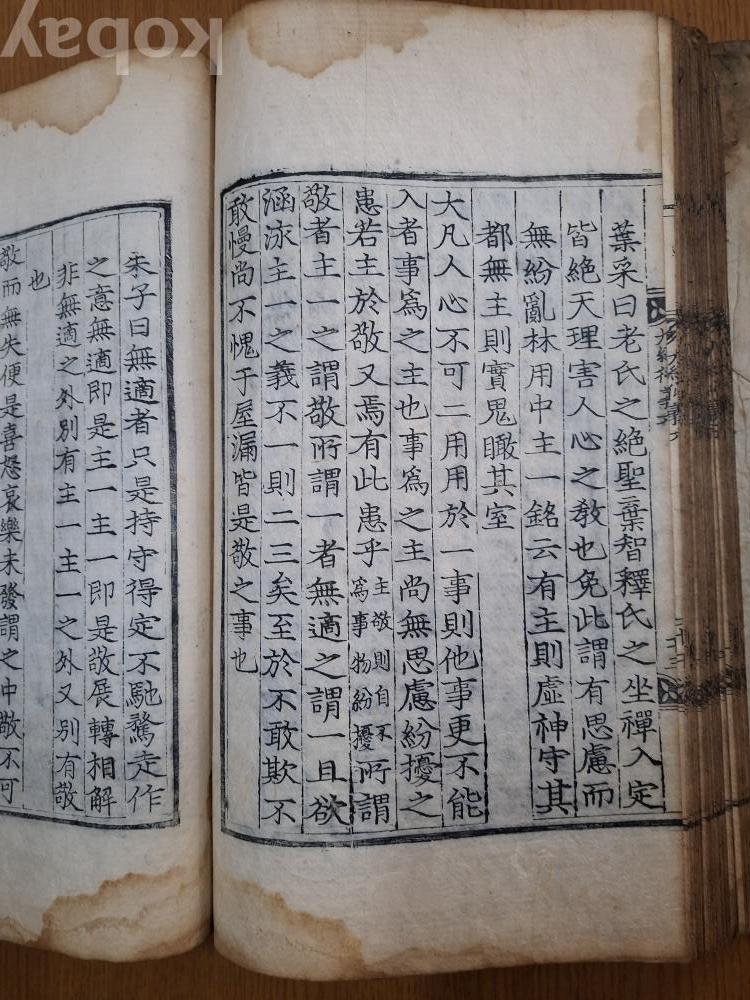 葉采曰老氏之絶聖棄智釋氏之坐禪入定
皆絶天理害人心之敎也免此謂有思慮而
無紛亂林用中主一銘云有主則虛神守其
都無主則實鬼瞰其室
大凡人心不可二用用於一事則他事更不能
入者事爲之主也事爲之主尚無思慮紛擾之
患若主於敬又焉有此患乎主敬則自不爲事物紛擾所謂
敬者主一之謂敬所謂一者無適之謂一且欲
涵泳主一之義不一則二三矣至於不敢欺不
敢慢尚不愧于屋漏皆是敬之事也
朱子曰無適者只是持守得定不馳騖走作
之意無適即是主一主一即是敬展轉相解
非無適之外別有主一主一之外又別有敬
也
敬而無失便是喜怒哀樂未發謂之中敬不可
kobay